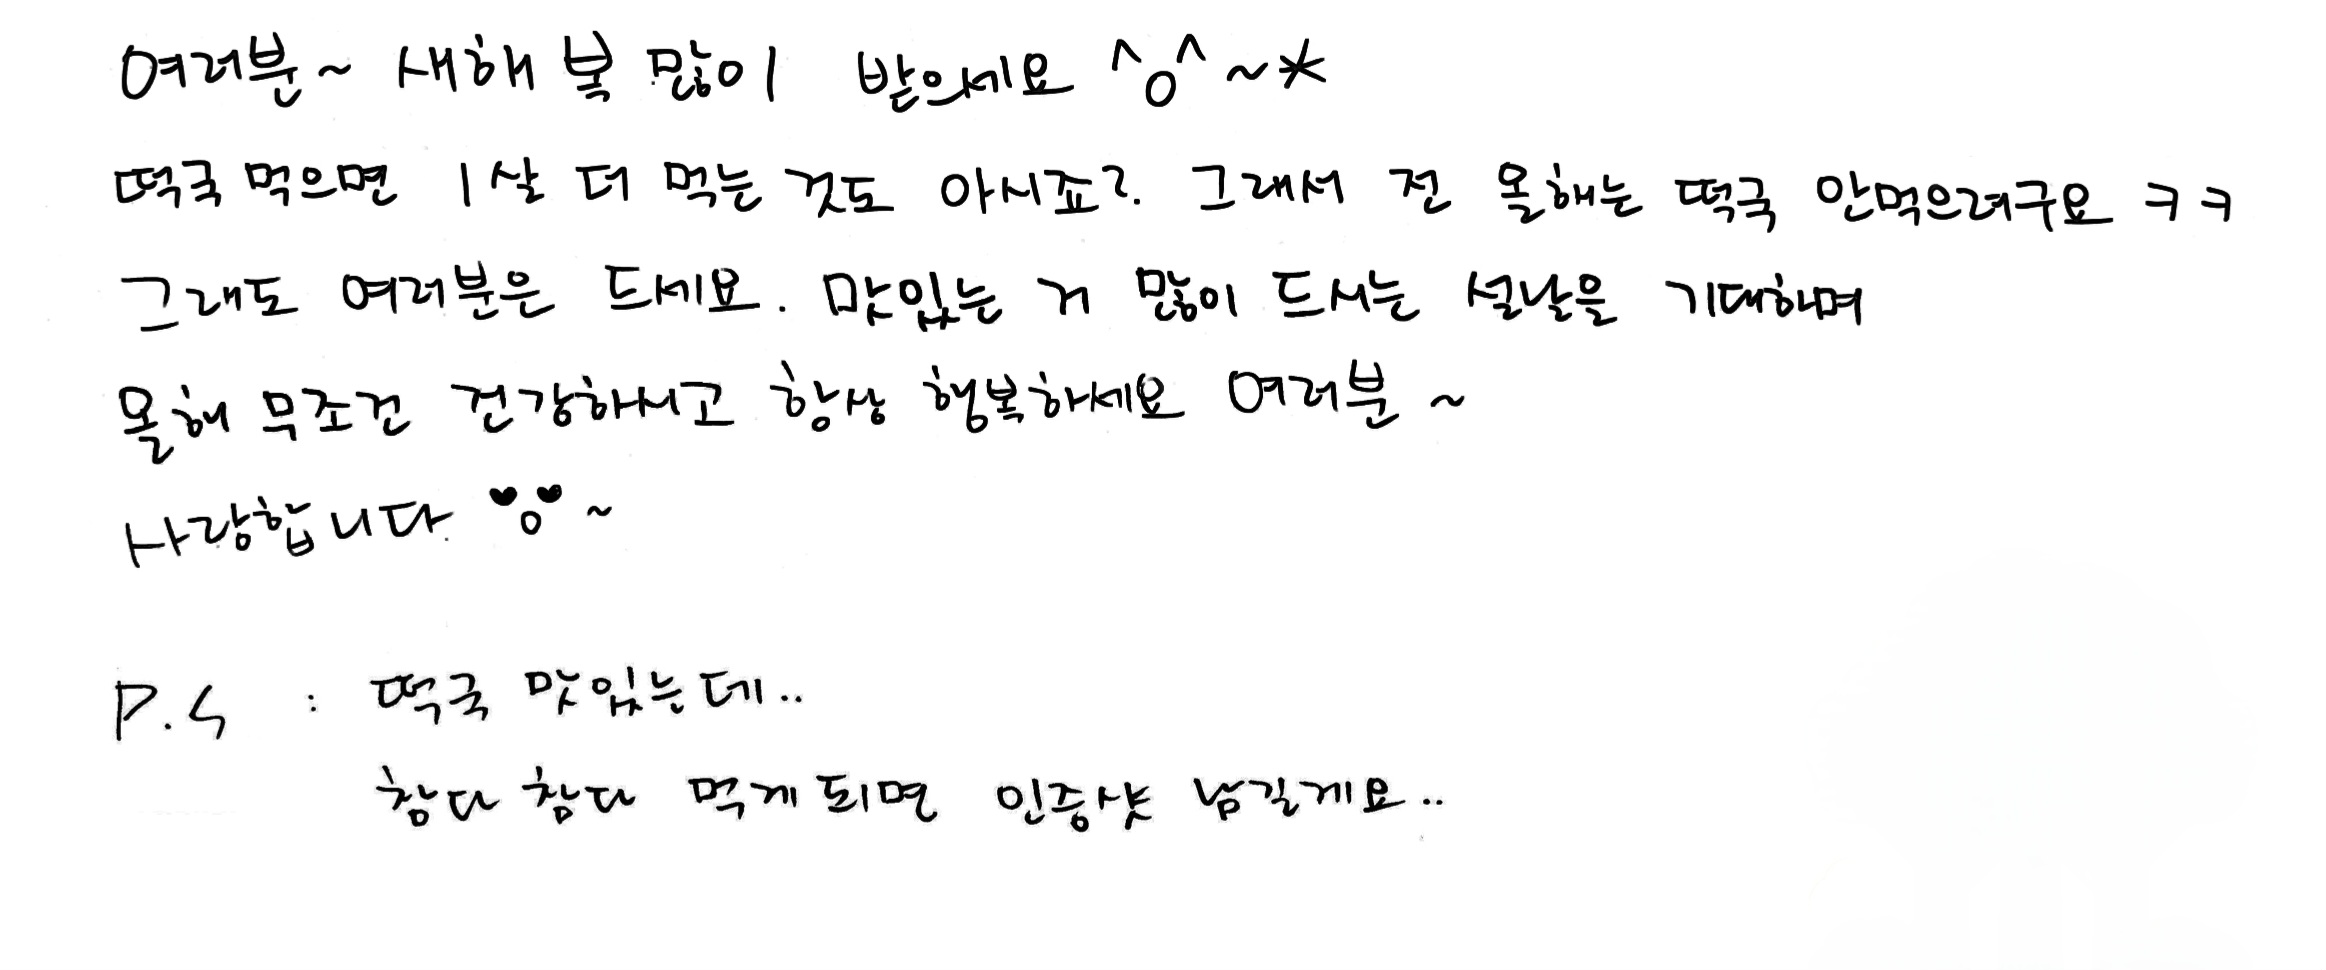 여러분~ 새해 복 많이 받으세요 ^o^~*
떡국 먹으면 1살 더 먹는 것도 아시죠? 그래서 전 올해는 떡국 안먹으려구요 ㅋㅋ
그래도 여러분은 드세요. 맛있는 거 많이 드시는 설날을 기대하며
올해 무조건 건강하시고 항상 행복하세요 여러분~
사랑합니다 ♥o♥~
P.S : 떡국 맛있는데..
참다 참다 먹게되면 인증샷 남길게요..